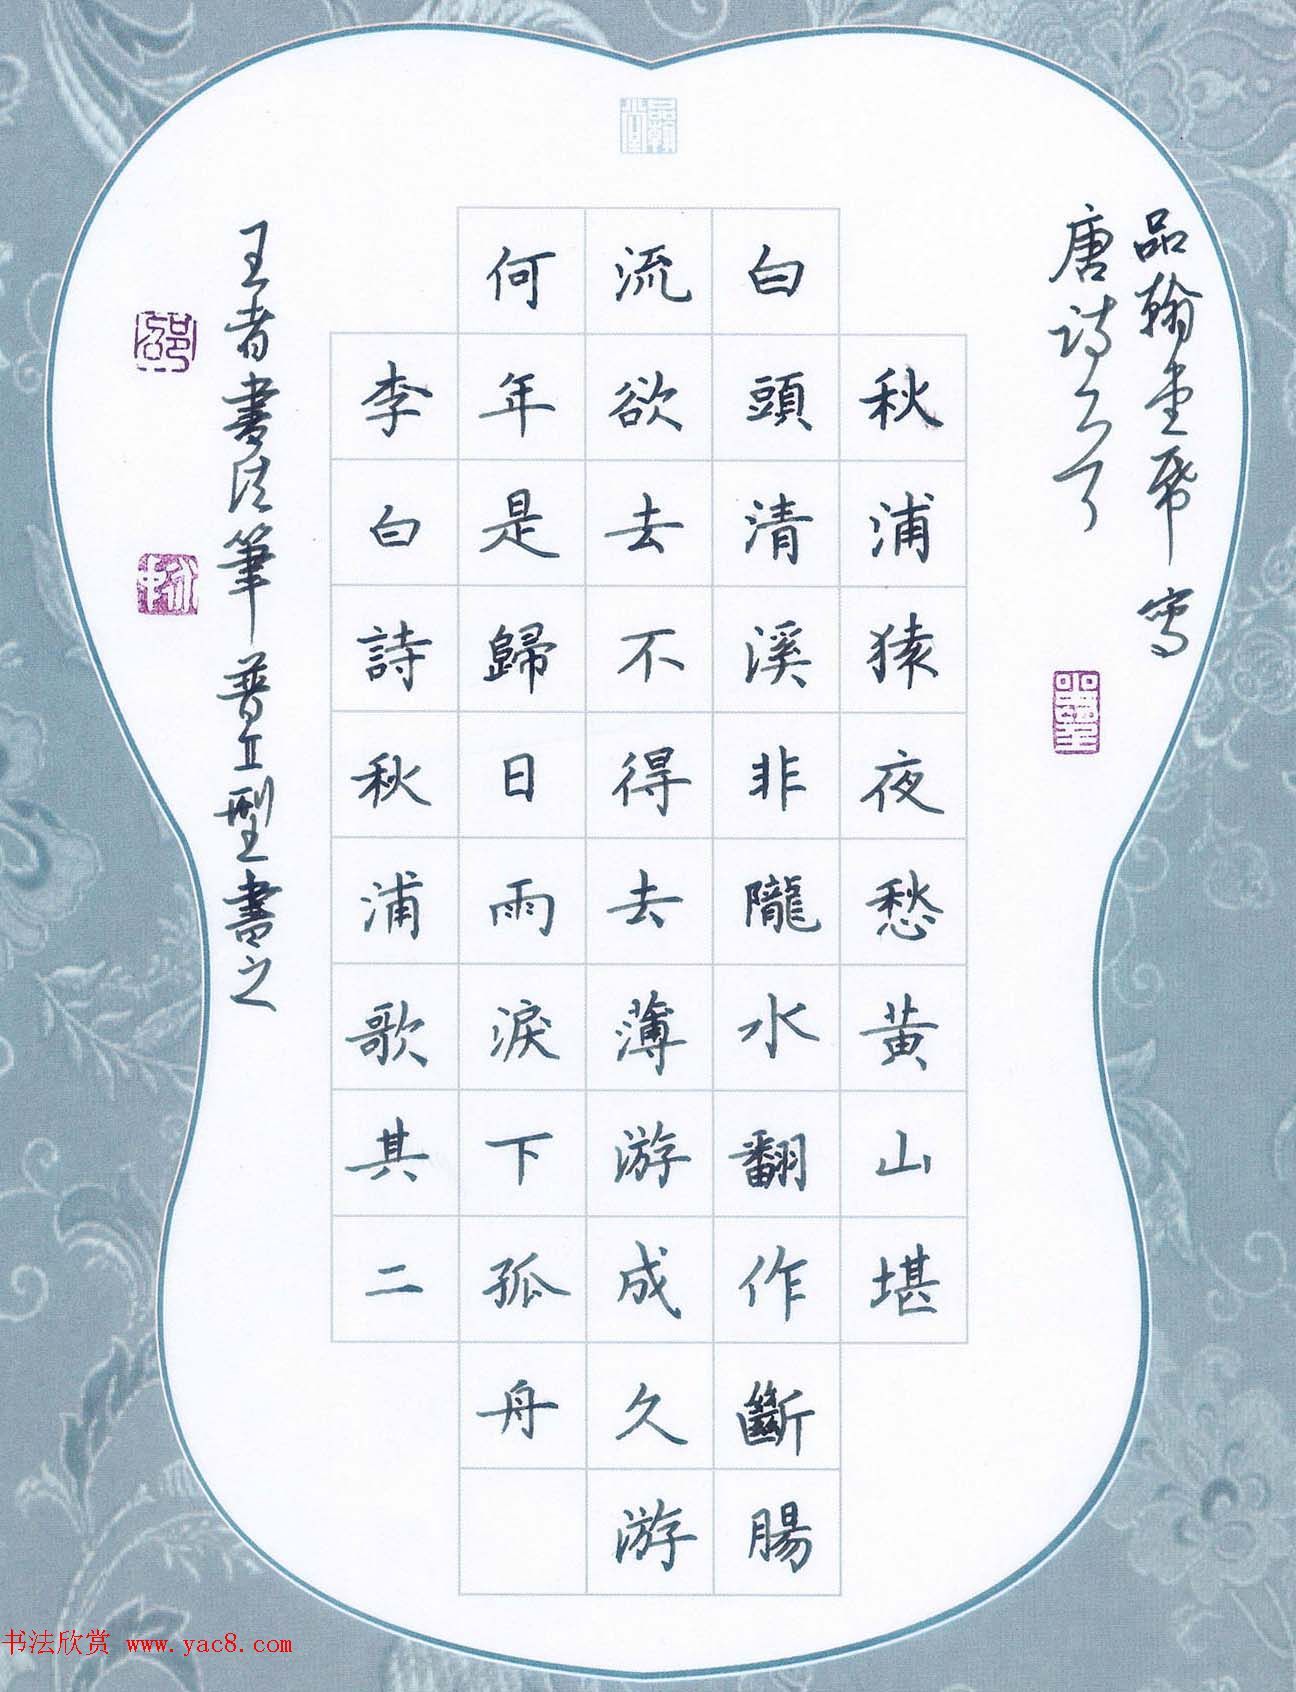 品翰堂聚寫
唐詩
秋浦猿夜愁黃山堪
白頭清溪非隴水翻作斷腸
流欲去不得去薄游成久游
何年是歸日雨淚下孤舟
李白詩秋浦歌其二
王者書法筆普Ⅱ型書之
书法欣赏 www.yac8.com